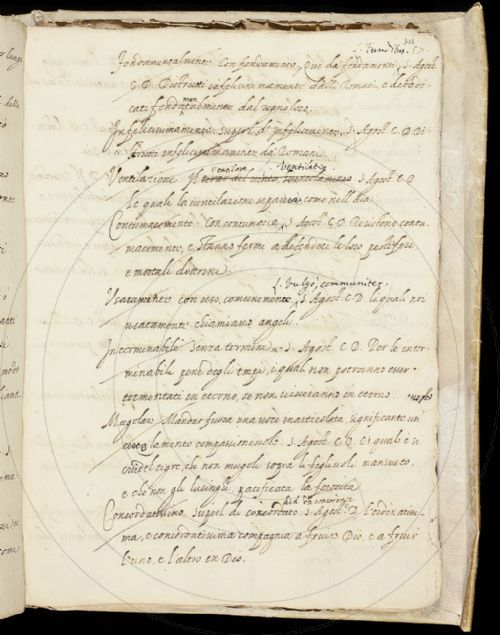 312
l. funditus. 57.
Fondamentalmente. Con fondamento, Cioè da fondamenti, S. Agost.
C. D. Distrutti infelicissimamente dalli Romani, e
cati fondamentalmente dal regno loro.
Infelicissimamente. Superl. d' infelicemente. S. Agost. C. D. Di-
strutti infelicissimamente da Romani.
ventilatio
Ventilazione. Il S. Agost. C. D.
le quali la ventilazione separera, come nell' Aia
Contumacemente. Con contumacia, S. Agost. C. D. Resistono contu-
macemente, e stanno fermi a difendere le loro pestifere
e mortali dottrine.
l. vulgo, communiter.
Usatamente. con uso, comunemente, S. Agost. C. D. le quali noi
usatamente chiamiamo angeli.
Interminabile. Senza termine. S. Agost. C. D. Per le inter-
minabili pene degli empi, i quali non potranno esser
tormentati in eterno, se non viveranno in eterno.
Mugolare. Mandar fuora una voce inarticolata, significante un
lamento compassionevole. S. Agost. C. D. Di quale è si
crudel tigre, che non mugoli sopra li figliuoli mansueto,
e che non gli lusinghi, pacificata la ferocità
Concordatissimo. Superl. di concordato. S. Agost. C. D. l'ordinatissi-
ma, e concordatissima compagnia a fruire Dio, e a fruir
l'uno, e l'altro in Dio.